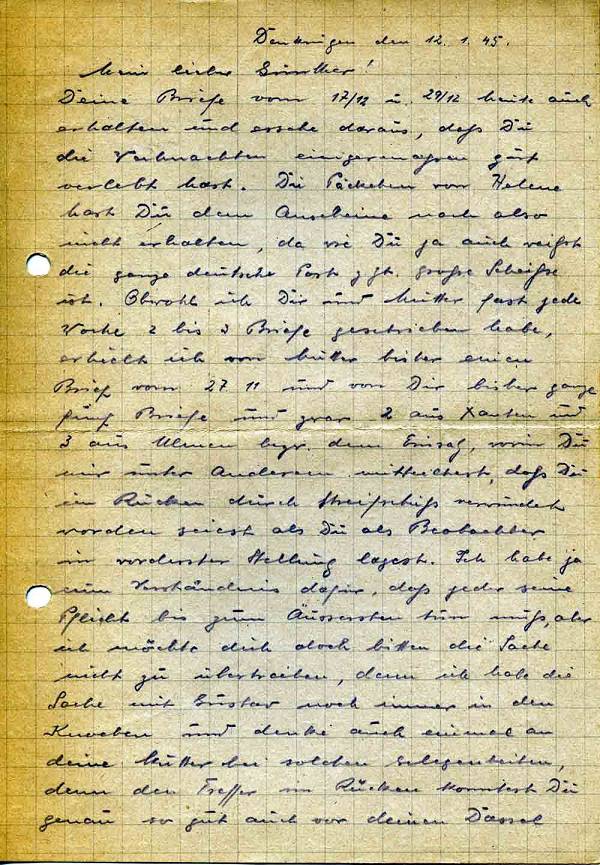 Denkingen den 12.1.45.
Mein lieber Günther!
Deine Briefe vom 17/12 u. 29/12 heute auch
erhalten und ersehe daraus, daß Du
die Weihnachten einigermassen gut
verlebt hast. Die Päckchen von Helene
hast Du dem Anscheine nach also
nicht erhalten, da wie Du ja auch weißt
die ganze deutsche Post z. Zt. große Scheiße
ist. Obwohl ich Dir und Mutter fast jede
Woche 2 bis 3 Briefe geschrieben habe,
erhielt ich von Mutter bisher einen
Brief vom 27.11 und von Dir bisher ganze
fünf Briefe und zwar 2 aus Xanten und
3 aus Ulmen bezw. dem Einsatz, worin Du
mir unter Anderem mitteiltest, daß Du
im Rücken durch Streifschuß verwundet
worden seiest als Du als Beobachter
in vorderster Stellung lagest. Ich habe ja
zum Verständnis dafür, daß jeder seine
Pflicht bis zum Äussersten tun muß, aber
ich möchte dich doch bitten die Sache
nicht zu übertreiben, denn ich habe die
Sache mit Gustav noch immer in den
Knochen und denke auch einmal an
deine Mutter bei solchen Gelegenheiten,
denn den Treffer im Rücken konntest Du
genau so gut auch vor deinen Dassel